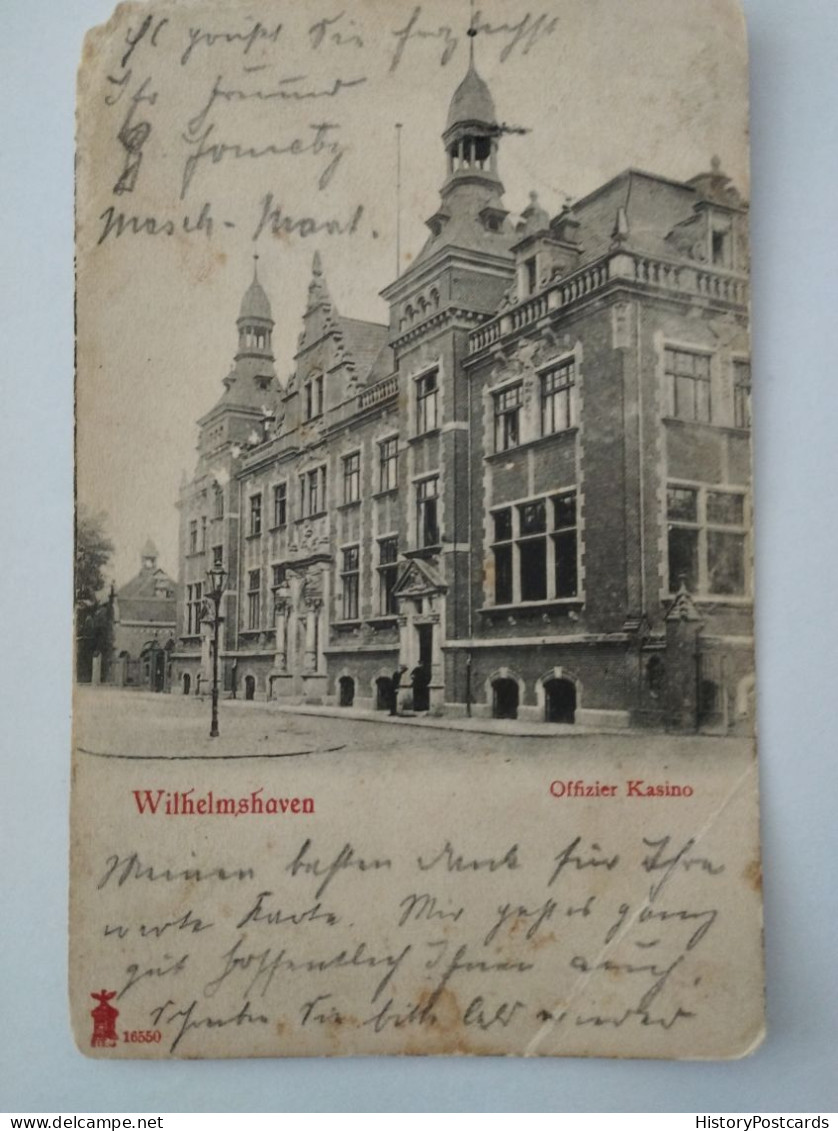 Es grüßt Sie herzlichst
Ihr Freund
Masch.-Maat.
Wilhelmshaven
Offizier Kasino
Meinen besten Dank für Ihre
werte Karte. Mir geht es ganz
gut hoffentlich Ihnen auch.
Schreiben Sie bitte bald wieder
16550
HistoryPostcards